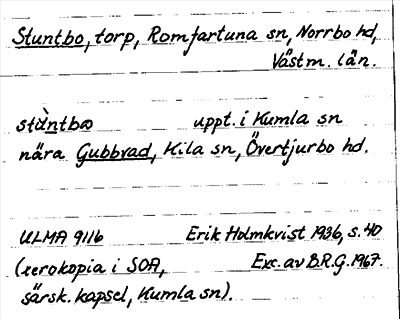 Stuntbo, torp, Romfartuna sn, Norrbo hd,
Västm. län.
stu̇̀ntbω uppt. i Kumla sn
nära Gubbvad, Kila sn, Övertjurbo hd.
ULMA 9116 Erik Holmkvist 1936, s. 40
(xerokopia i SOA, Exc. av B.R.G. 1967.
särsk. kapsel, Kumla sn).